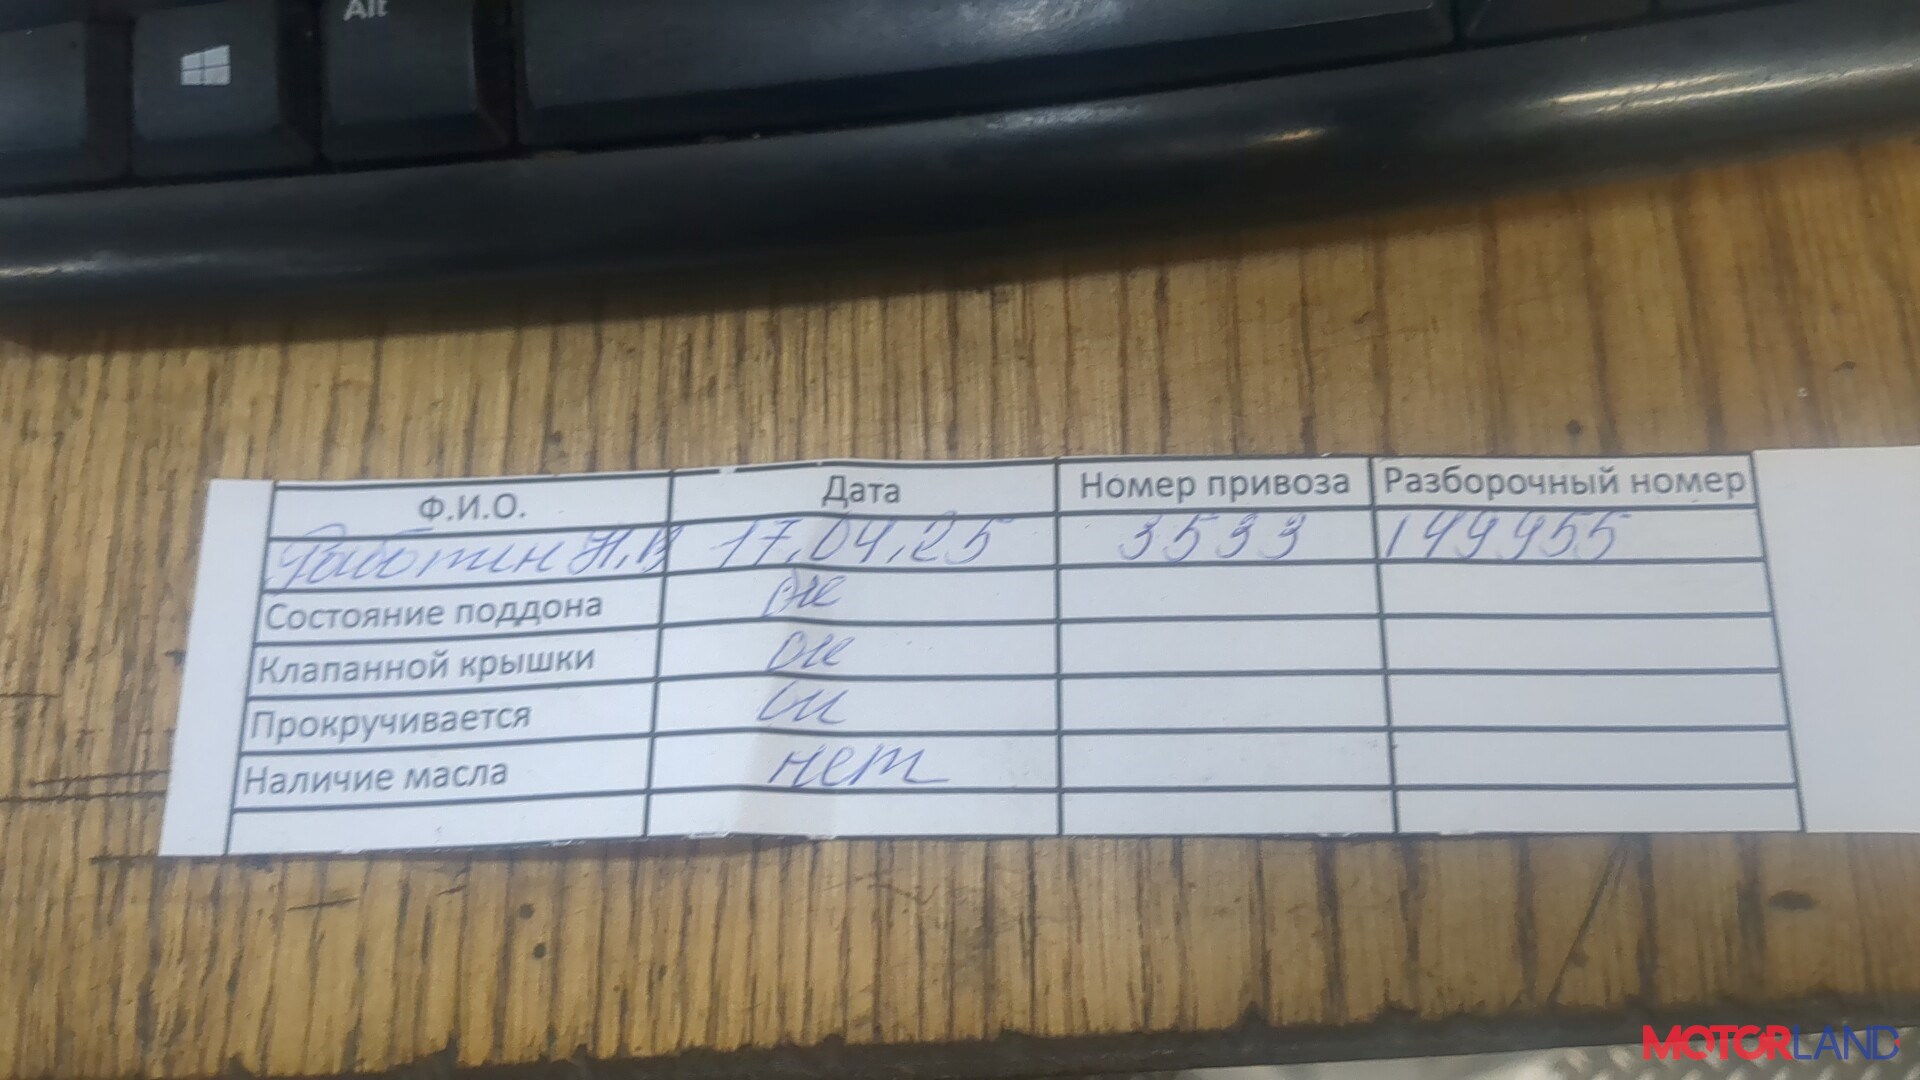 Alt
Ф.И.О. Дата Номер привоза Разборочный номер
Работин Н.В 17.04.25 3533 149955
Состояние поддона ок
Клапанной крышки ок
Прокручивается ок
Наличие масла нет
MOTORLAND